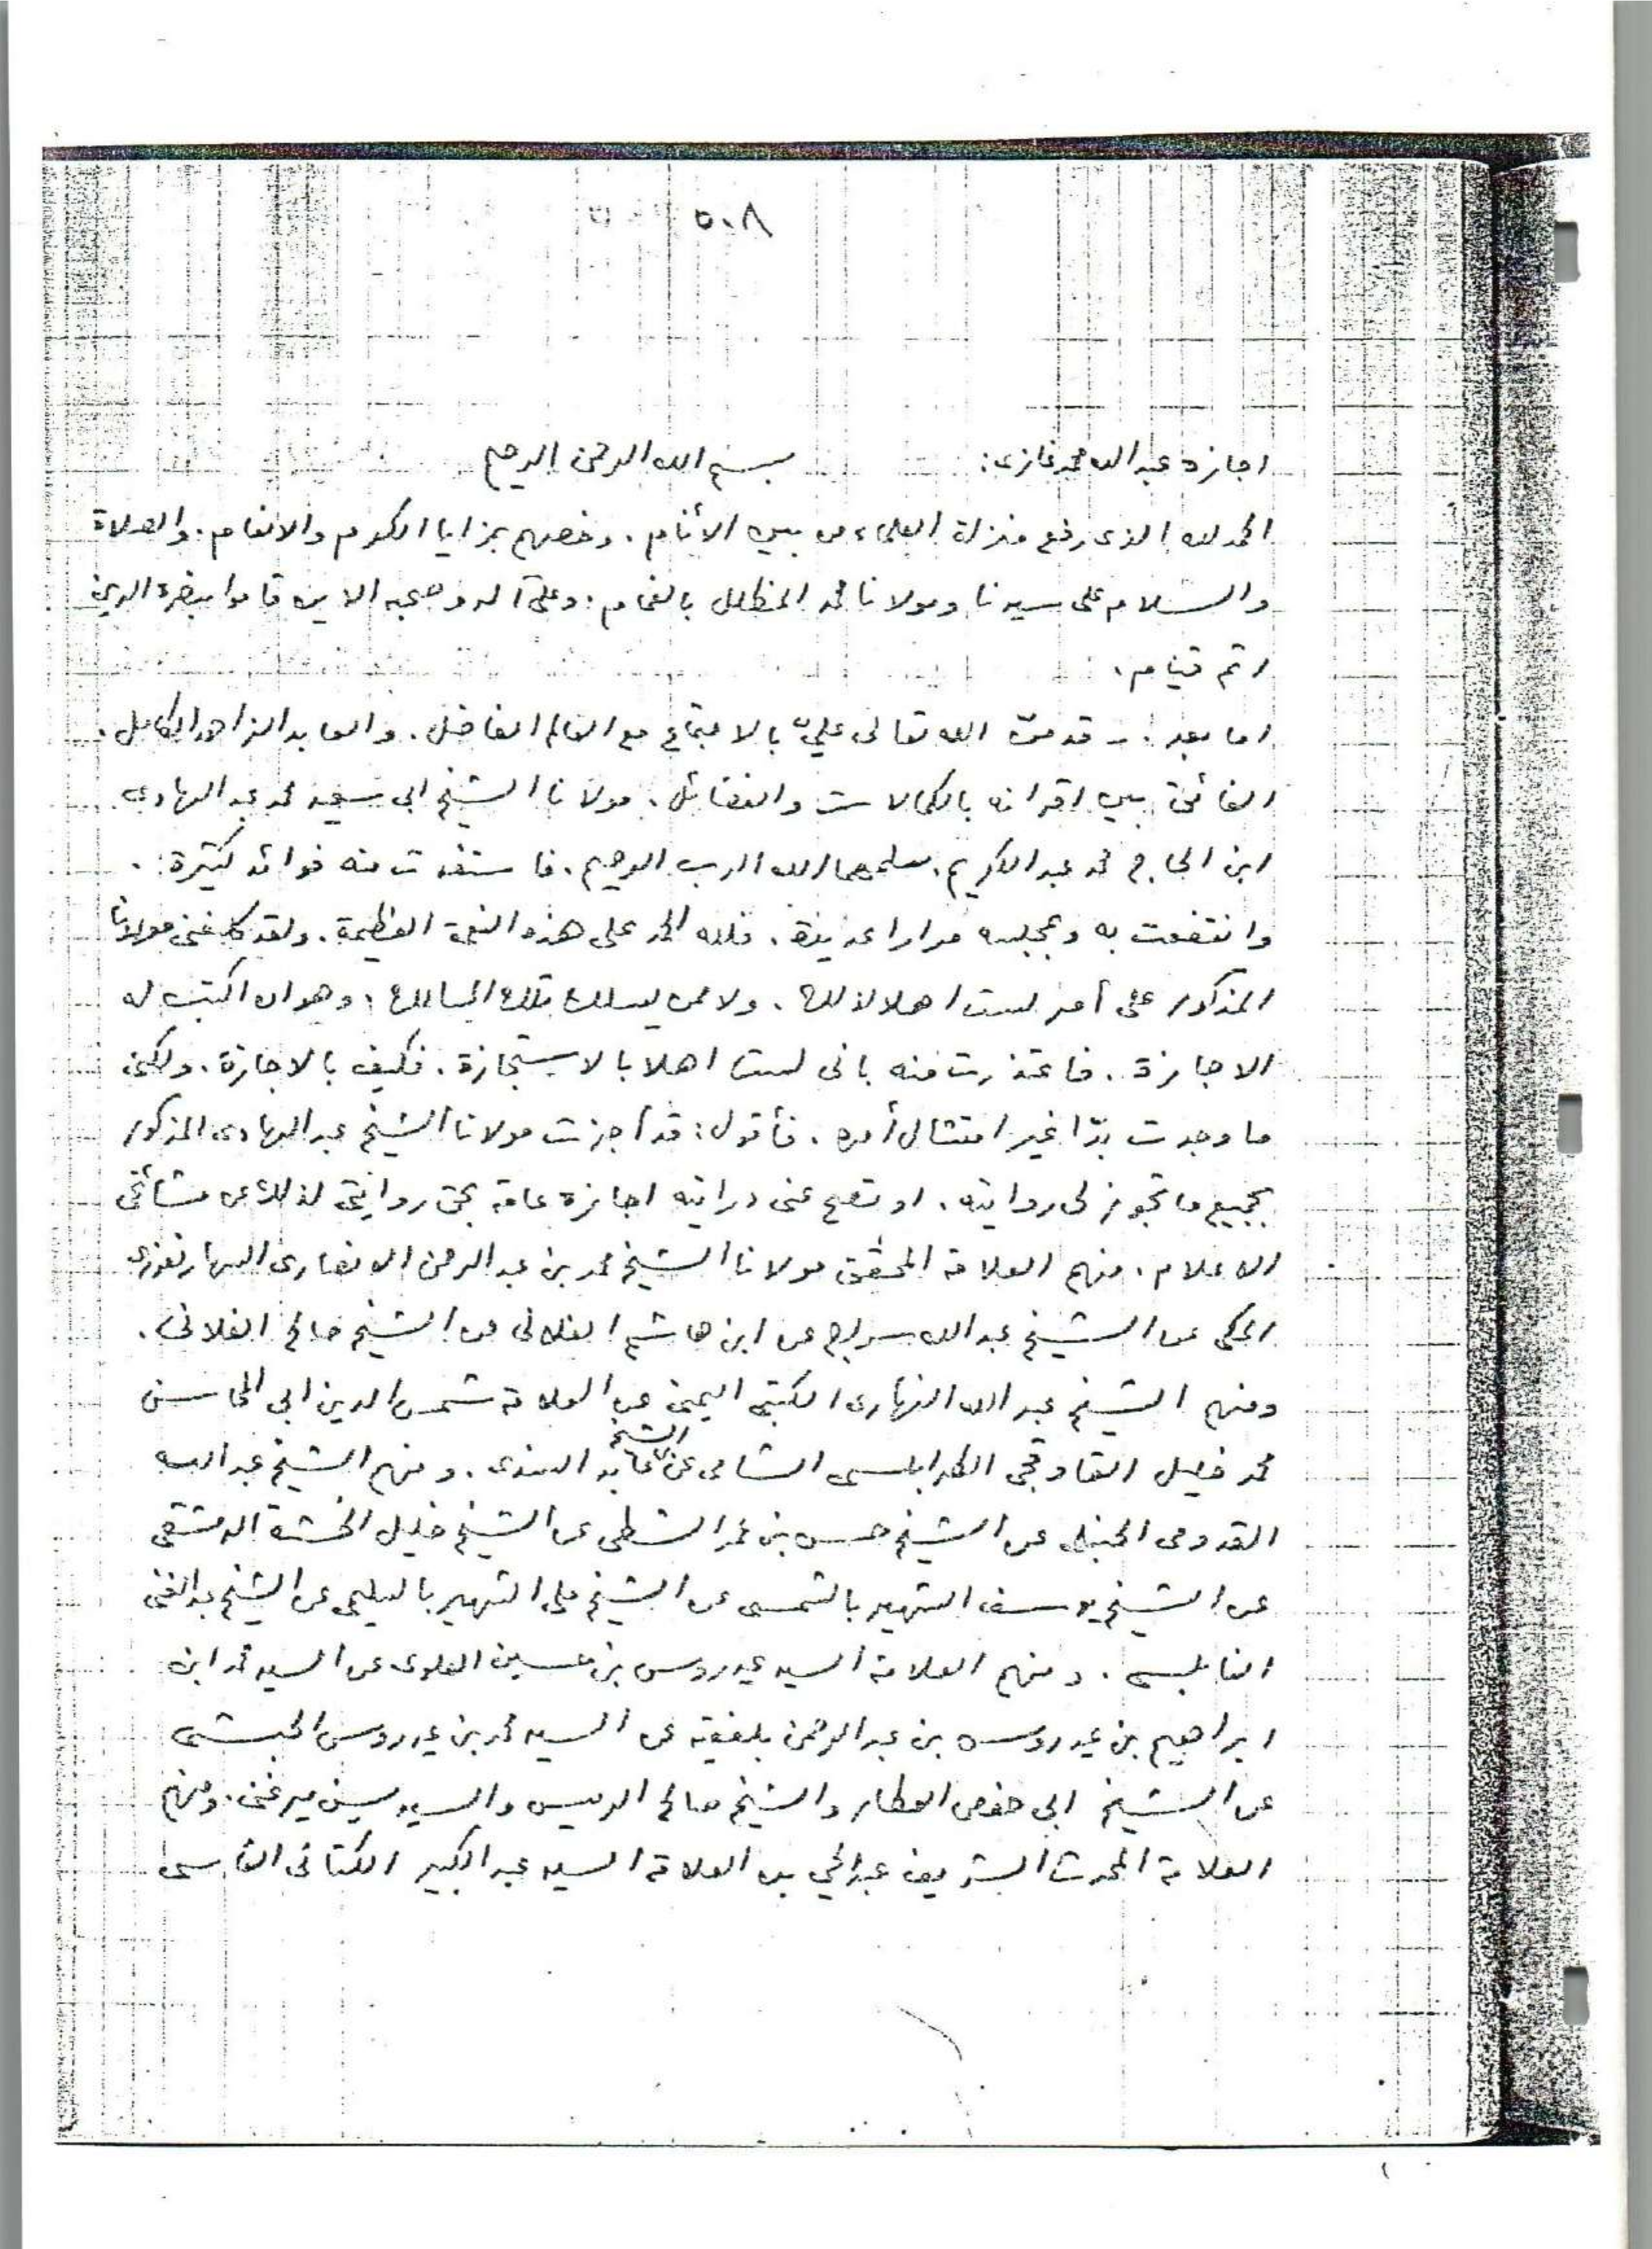 ٥٠٨
اجازة عبد الله محمد غازى:
بسم الله الرحمن الرحيم
الحمد لله الذى رفع منزلة العلماء من بين الأنام. وخصهم بمزايا الكرم والانعام. والصلاة
والسلام على سيدنا ومولانا محمد المظلل بالغمام. وعلى آله وصحبه الذين قاموا بنصرة الدين
اتم قيام.
اما بعد: قد منّ الله تعالى عليّ بالاجتماع مع العالم الفاضل. والعابد الزاهد الكامل.
الفائق بين اقرانه بالكمالات والفضائل. مولانا الشيخ ابى سعيد محمد عبد الهادى
ابن الحاج محمد عبد الكريم. سلمهما الله الرب الرحيم. فاستفدت منه فوائد كثيرة.
وانتفعت به وبمجلسه مرارا عديدة. فلله الحمد على هذه النعمة العظيمة. ولقد كلفنى مولانا
المذكور على أمر لست اهلا لذلك. ولا ممن يسلك تلك المسالك. وهو ان اكتب له
الاجازة. فاعتذرت منه بانى لست اهلا بالاستجازة. فكيف بالاجازة. ولكنى
ما وجدت بدّا غير امتثال أمره. فأقول: قد أجزت مولانا الشيخ عبد الهادى المذكور
بجميع ما تجوز لى روايته. او تصح عنى درايته اجازة عامة بحق روايتى لذلك عن مشائخى
الاعلام. منهم العلامة المحقق مولانا الشيخ محمد بن عبد الرحمن الانصارى السهارنفورى
المكى عن الشيخ عبد الله سراج عن ابن هاشم الفلانى عن الشيخ صالح الفلانى.
ومنهم الشيخ عبد الله النهارى الكتبى اليمنى عن العلامة شمس الدين ابى المحاسن
محمد خليل القاوقجى الطرابلسى الشامى عن الشيخ عابد السندى. ومنهم الشيخ عبد الله
القدومى الحنبلى عن الشيخ حسن بن عمر الشطى عن الشيخ خليل الخشة الدمشقى
عن الشيخ يوسف الشهير بالشمسى عن الشيخ على الشهير بالسليمى عن الشيخ عبد الغنى
النابلسى. ومنهم العلامة السيد عيدروس بن حسين العلوى عن السيد محمد ابن
ابراهيم بن عيدروس بن عبد الرحمن بلفقيه عن السيد محمد بن عيدروس الحبشى
عن الشيخ ابى حفص العطار والشيخ صالح الريس والسيد يسن ميرغنى. ومنهم
العلامة المحدث الشريف عبد الحي بن العلامة السيد عبد الكبير الكتانى الفاسى